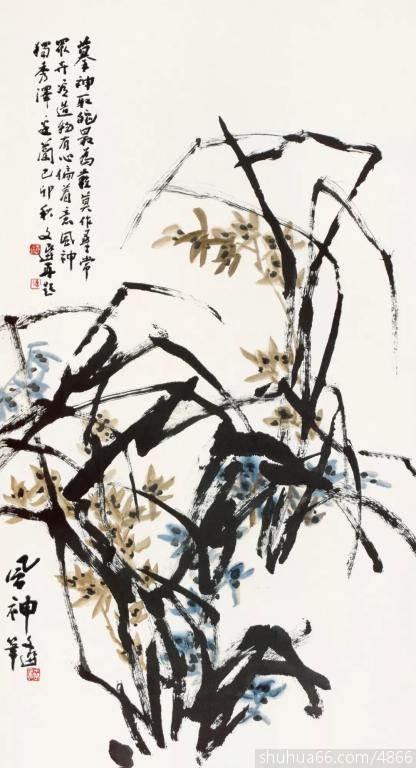 摹神取貌最為難莫作尋常
眾卉看造物有心偏着意風神
獨秀澤蘭己卯秋文選再題
風神
shuhua66.com/4866